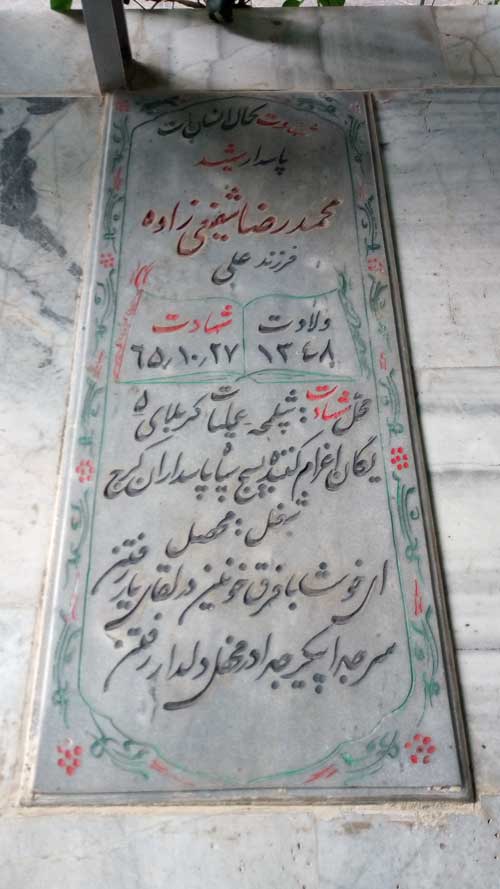 شهادت کمال انسان است
پاسدار شهید
محمدرضا شفیعی زاده
فرزند علی
ولادت شهادت
۱۳۴۸ ۶۵٫۱۰٫۲۷
محل شهادت: شلمچه عملیات کربلای ۵
یگان اعزام کننده بسیج سپاه پاسداران کرج
شغل: محصل
ای خوشا با فرق خونین در لقای یار رفتن
سر جدا پیکر جدا در محفل دلدار رفتن